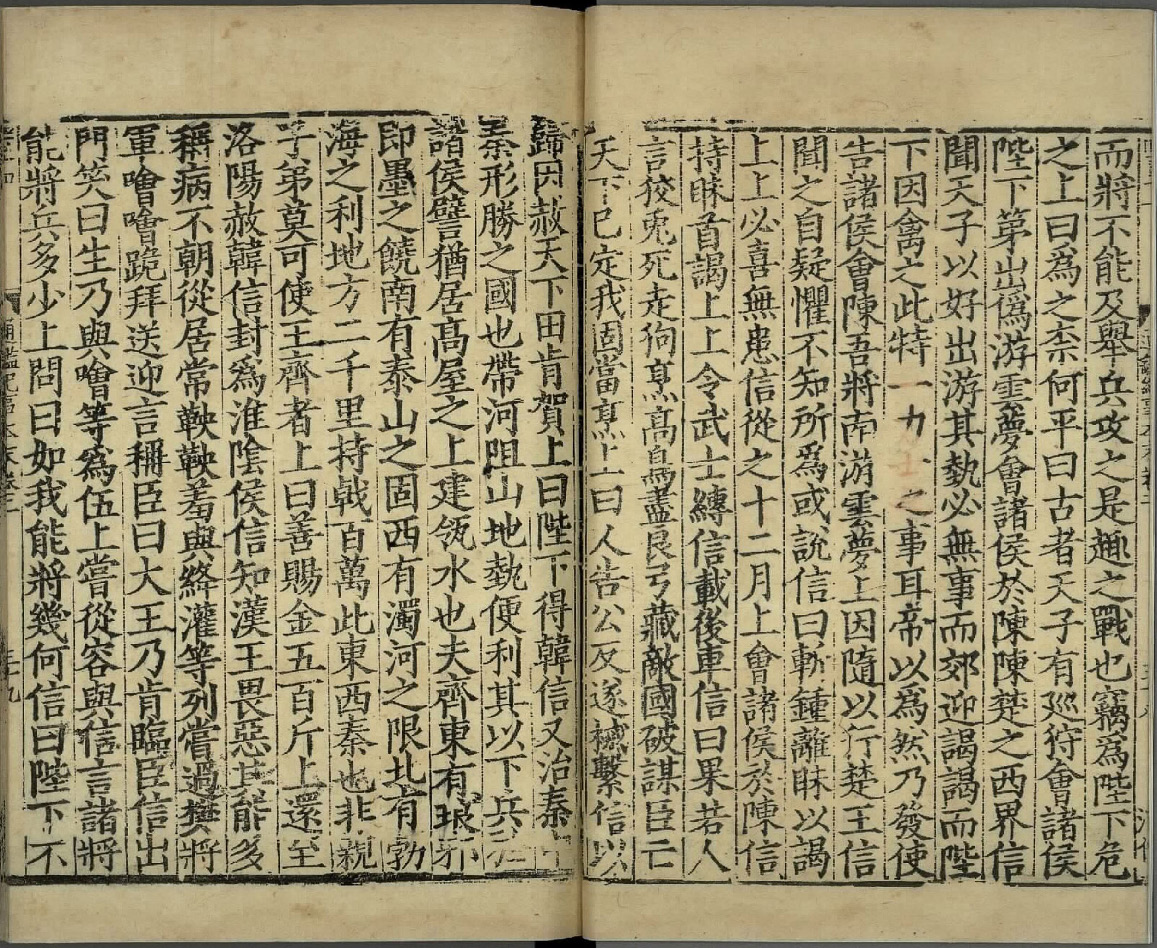 而將不能及舉兵攻之是趣之戰也竊爲陛下危
之上曰爲之柰何平曰古者天子有巡狩會諸侯
陛下第出僞游雲夢會諸侯於陳陳楚之西界信
聞天子以好出游其勢必無事而郊迎謁謁而陛
下因禽之此特一力士之事耳帝以爲然乃發使
告諸侯會陳吾將南游雲夢上因隨以行楚王信
聞之自疑懼不知所爲或說信曰斬鍾離眛以謁
上上必喜無患信從之十二月上會諸侯於陳信
持眛首謁上上令武士縛信載後車信曰果若人
言狡兎死走狗烹高鳥盡良弓藏敵國破謀臣亡
天下已定我固當烹上曰人告公反遂械繫信以
歸因赦天下田肯賀上曰陛下得韓信又治秦中
秦形勝之國也帶河阻山地執便利其以下兵
諸侯譬猶居高屋之上建瓴水也夫齊東有琅邪
即墨之饒南有泰山之固西有濁河之限北有勃
海之利地方二千里持戟百萬此東西秦也非親
子弟莫可使王齊者上曰善賜金五百斤上還至
洛陽赦韓信封爲淮陰侯信知漢王畏惡其能多
稱病不朝從居常鞅鞅羞與絳灌等列嘗過樊將
軍噲噲跪拜送迎言稱臣曰大王乃肯臨臣信出
門笑曰生乃與噲等爲伍上嘗從容與信言諸將
能將兵多少上問曰如我能將幾何信曰陛下不